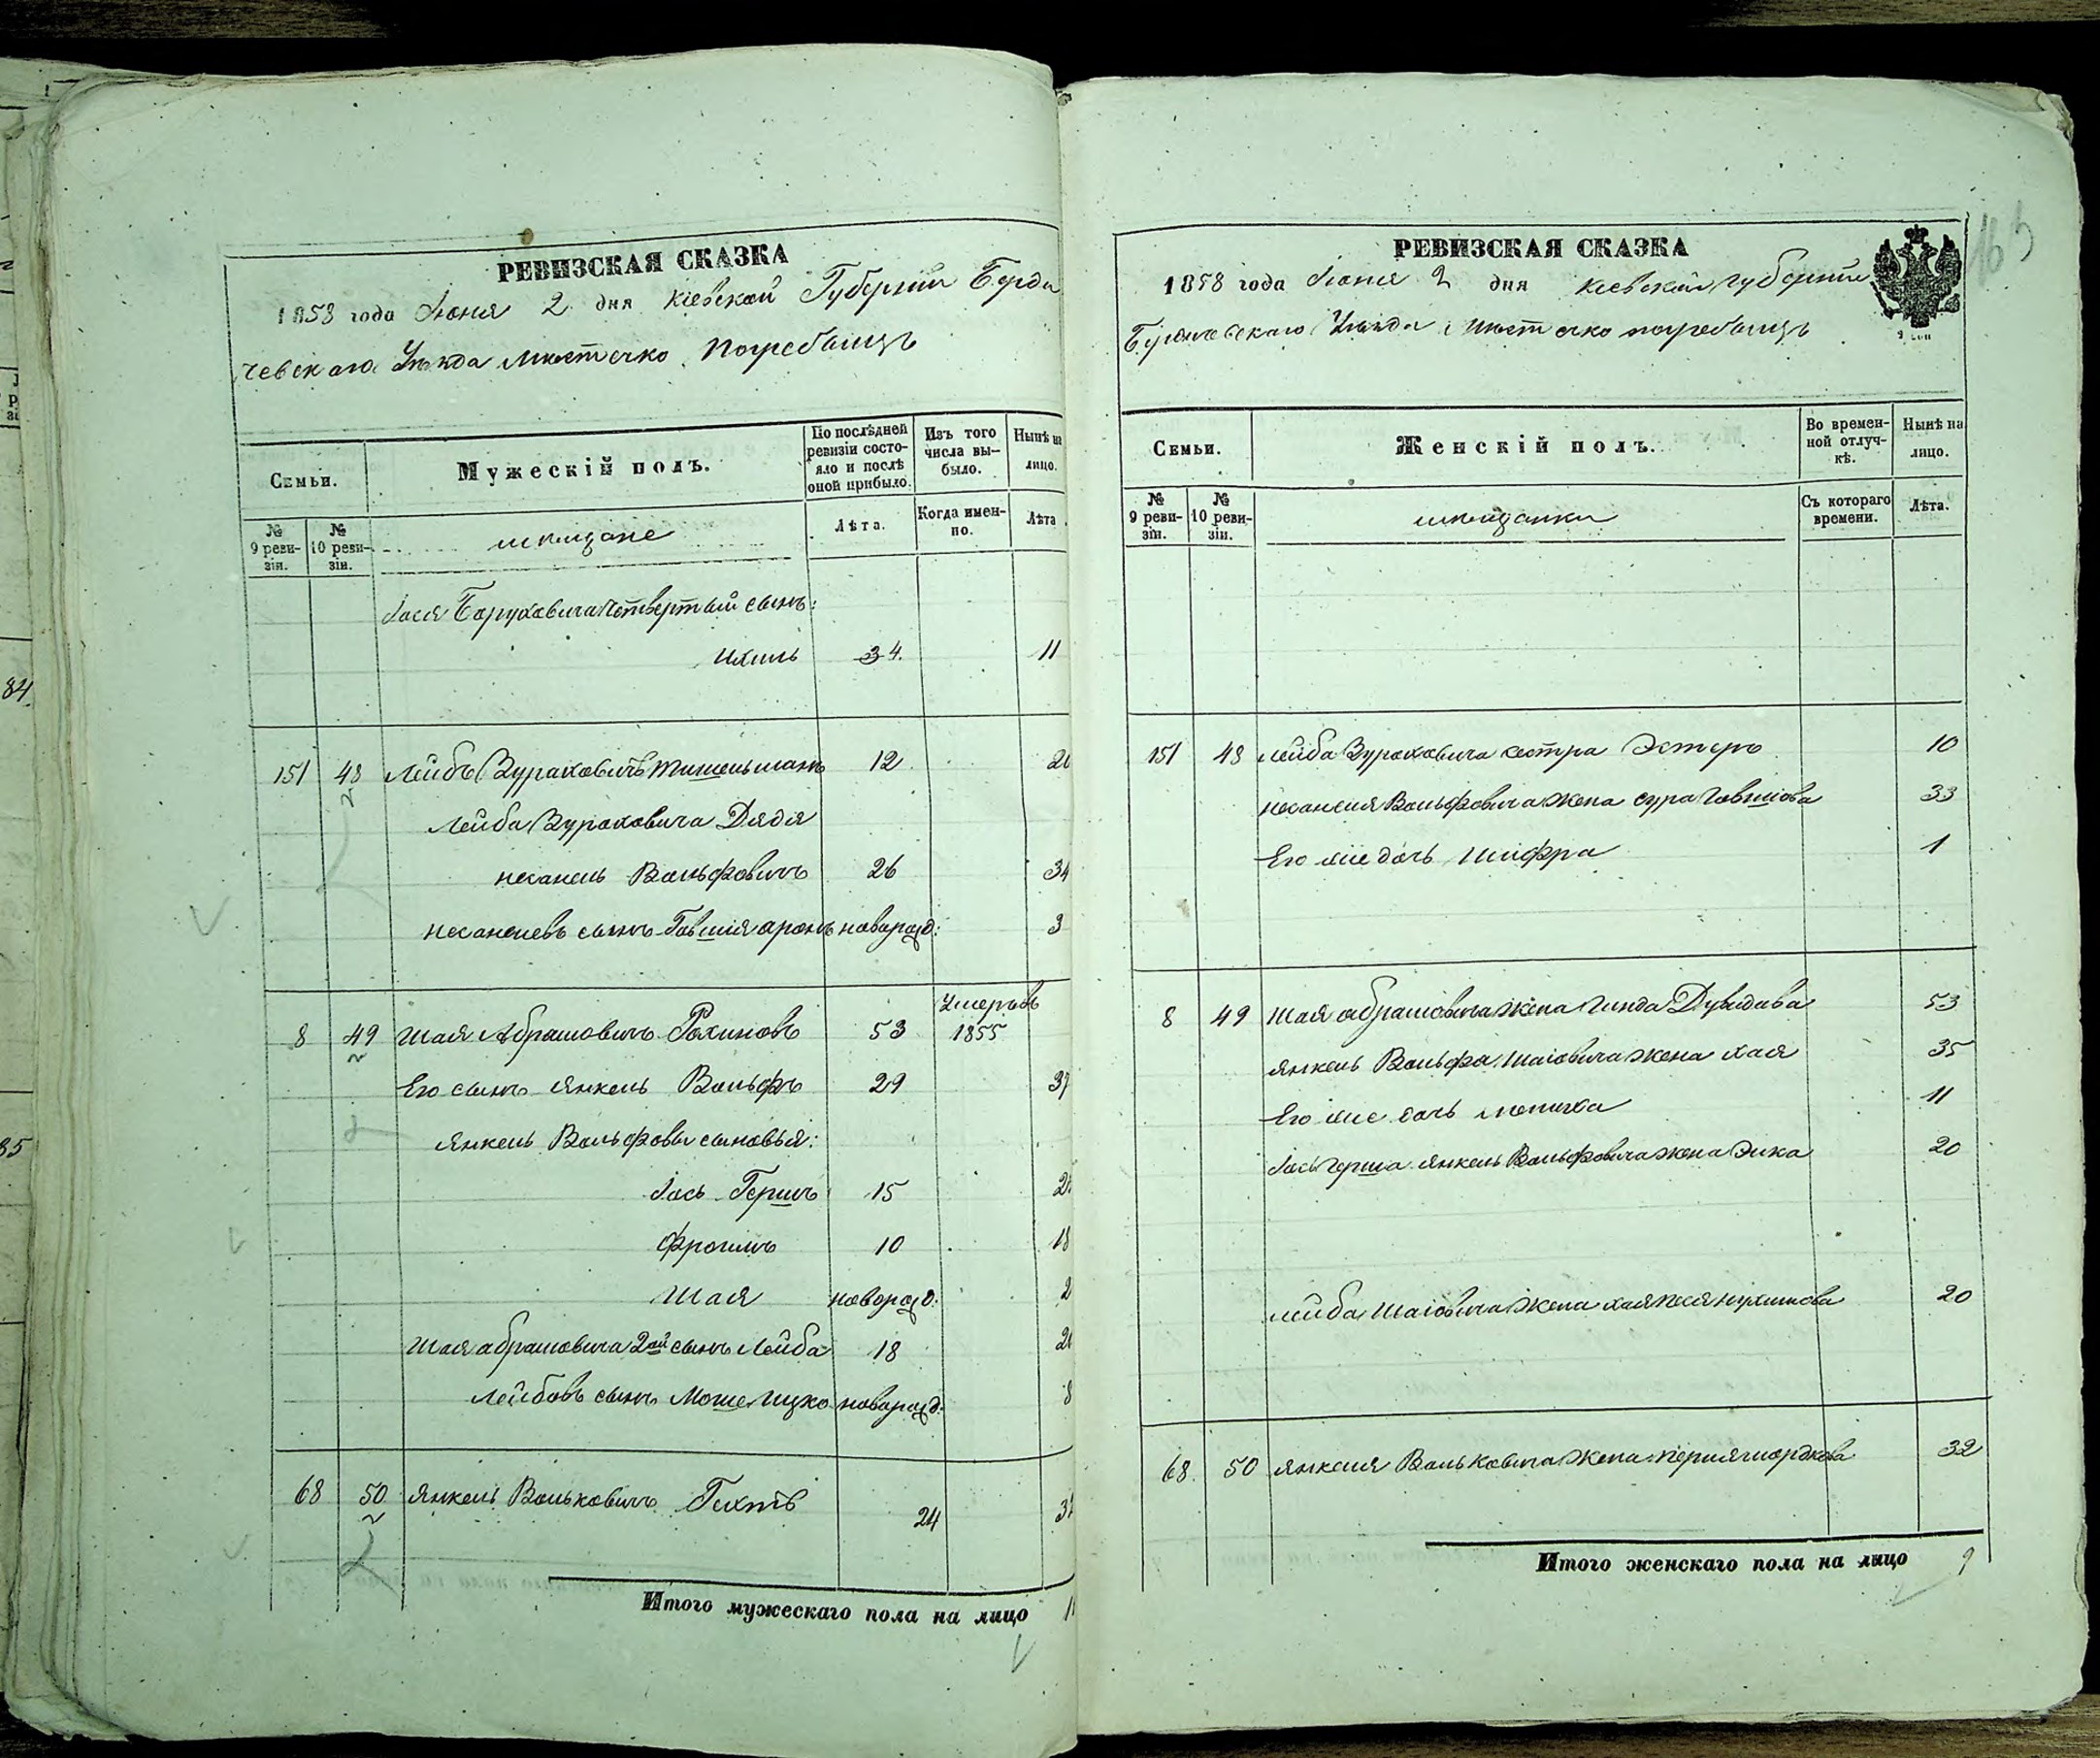 РЕВИЗСКАЯ СКАЗКА
1858 года Июня 2 дня Кіевской Губерніи Берди
чевскаго Уѣзда Мѣстечко Погребищъ
Семьи.
Мужескій полъ.
По послѣдней ревизіи состояло и послѣ оной прибыло.
Изъ того числа выбыло.
Нынѣ на лицо.
№ 9 ревизіи.
№ 10 ревизіи.
мѣщане
Лѣта.
Когда именно.
Лѣта
Іося Боруховича четвертый сынъ:
Ихиль 34. 11
151 48 Лейбъ Зураховичъ 12
Лейба Зураховича Дядя
Несанель Вольфовичъ 26 34
Несанелевъ сынъ Говшія Аронъ новорожд: 3
Умеръ въ
8 49 Шая Абрамовичъ Рохиновъ 53 1855
Его сынъ Янкель Вольфъ 29 37
Янкель Вольфовы сыновья:
Іось Гершъ 15 2
Фроимъ 10 18
Шая новорожд: 2
Шая Абрамовича 2ой сынъ Лейба 18 2
Лейбовъ сынъ Мошe Ицко новорожд: 8
68 50 Янкель Вольковичъ Гехтъ 24 3
Итого мужескаго пола на лицо 1
РЕВИЗСКАЯ СКАЗКА
1858 года Июня 2 дня Кіевской Губерніи
Бердичевскаго Уѣзда Мѣстечко Погребищъ
Семьи.
Женскій полъ.
Во временной отлучкѣ.
Нынѣ на лицо.
№ 9 ревизіи.
№ 10 ревизіи.
мѣщанки
Съ котораго времени.
Лѣта.
151 48 Лейба Зураховича сестра Эстеръ 10
Несанеля Вольфовича жена Сура Говшіова 33
Его же дочь Шифра 1
8 49 Шая Абрамовича жена Гинда Дувидова 53
Янкель Вольфа Шаіовича жена Хая 35
Его же дочь 11
Іось Герша Янкель Вольфовича жена Элка 20
Лейба Шаіовича жена Хая Песя Нухимова 20
68 50 Янкеля Вольковича жена Перля Мордкова 32
Итого женскаго пола на лицо 9